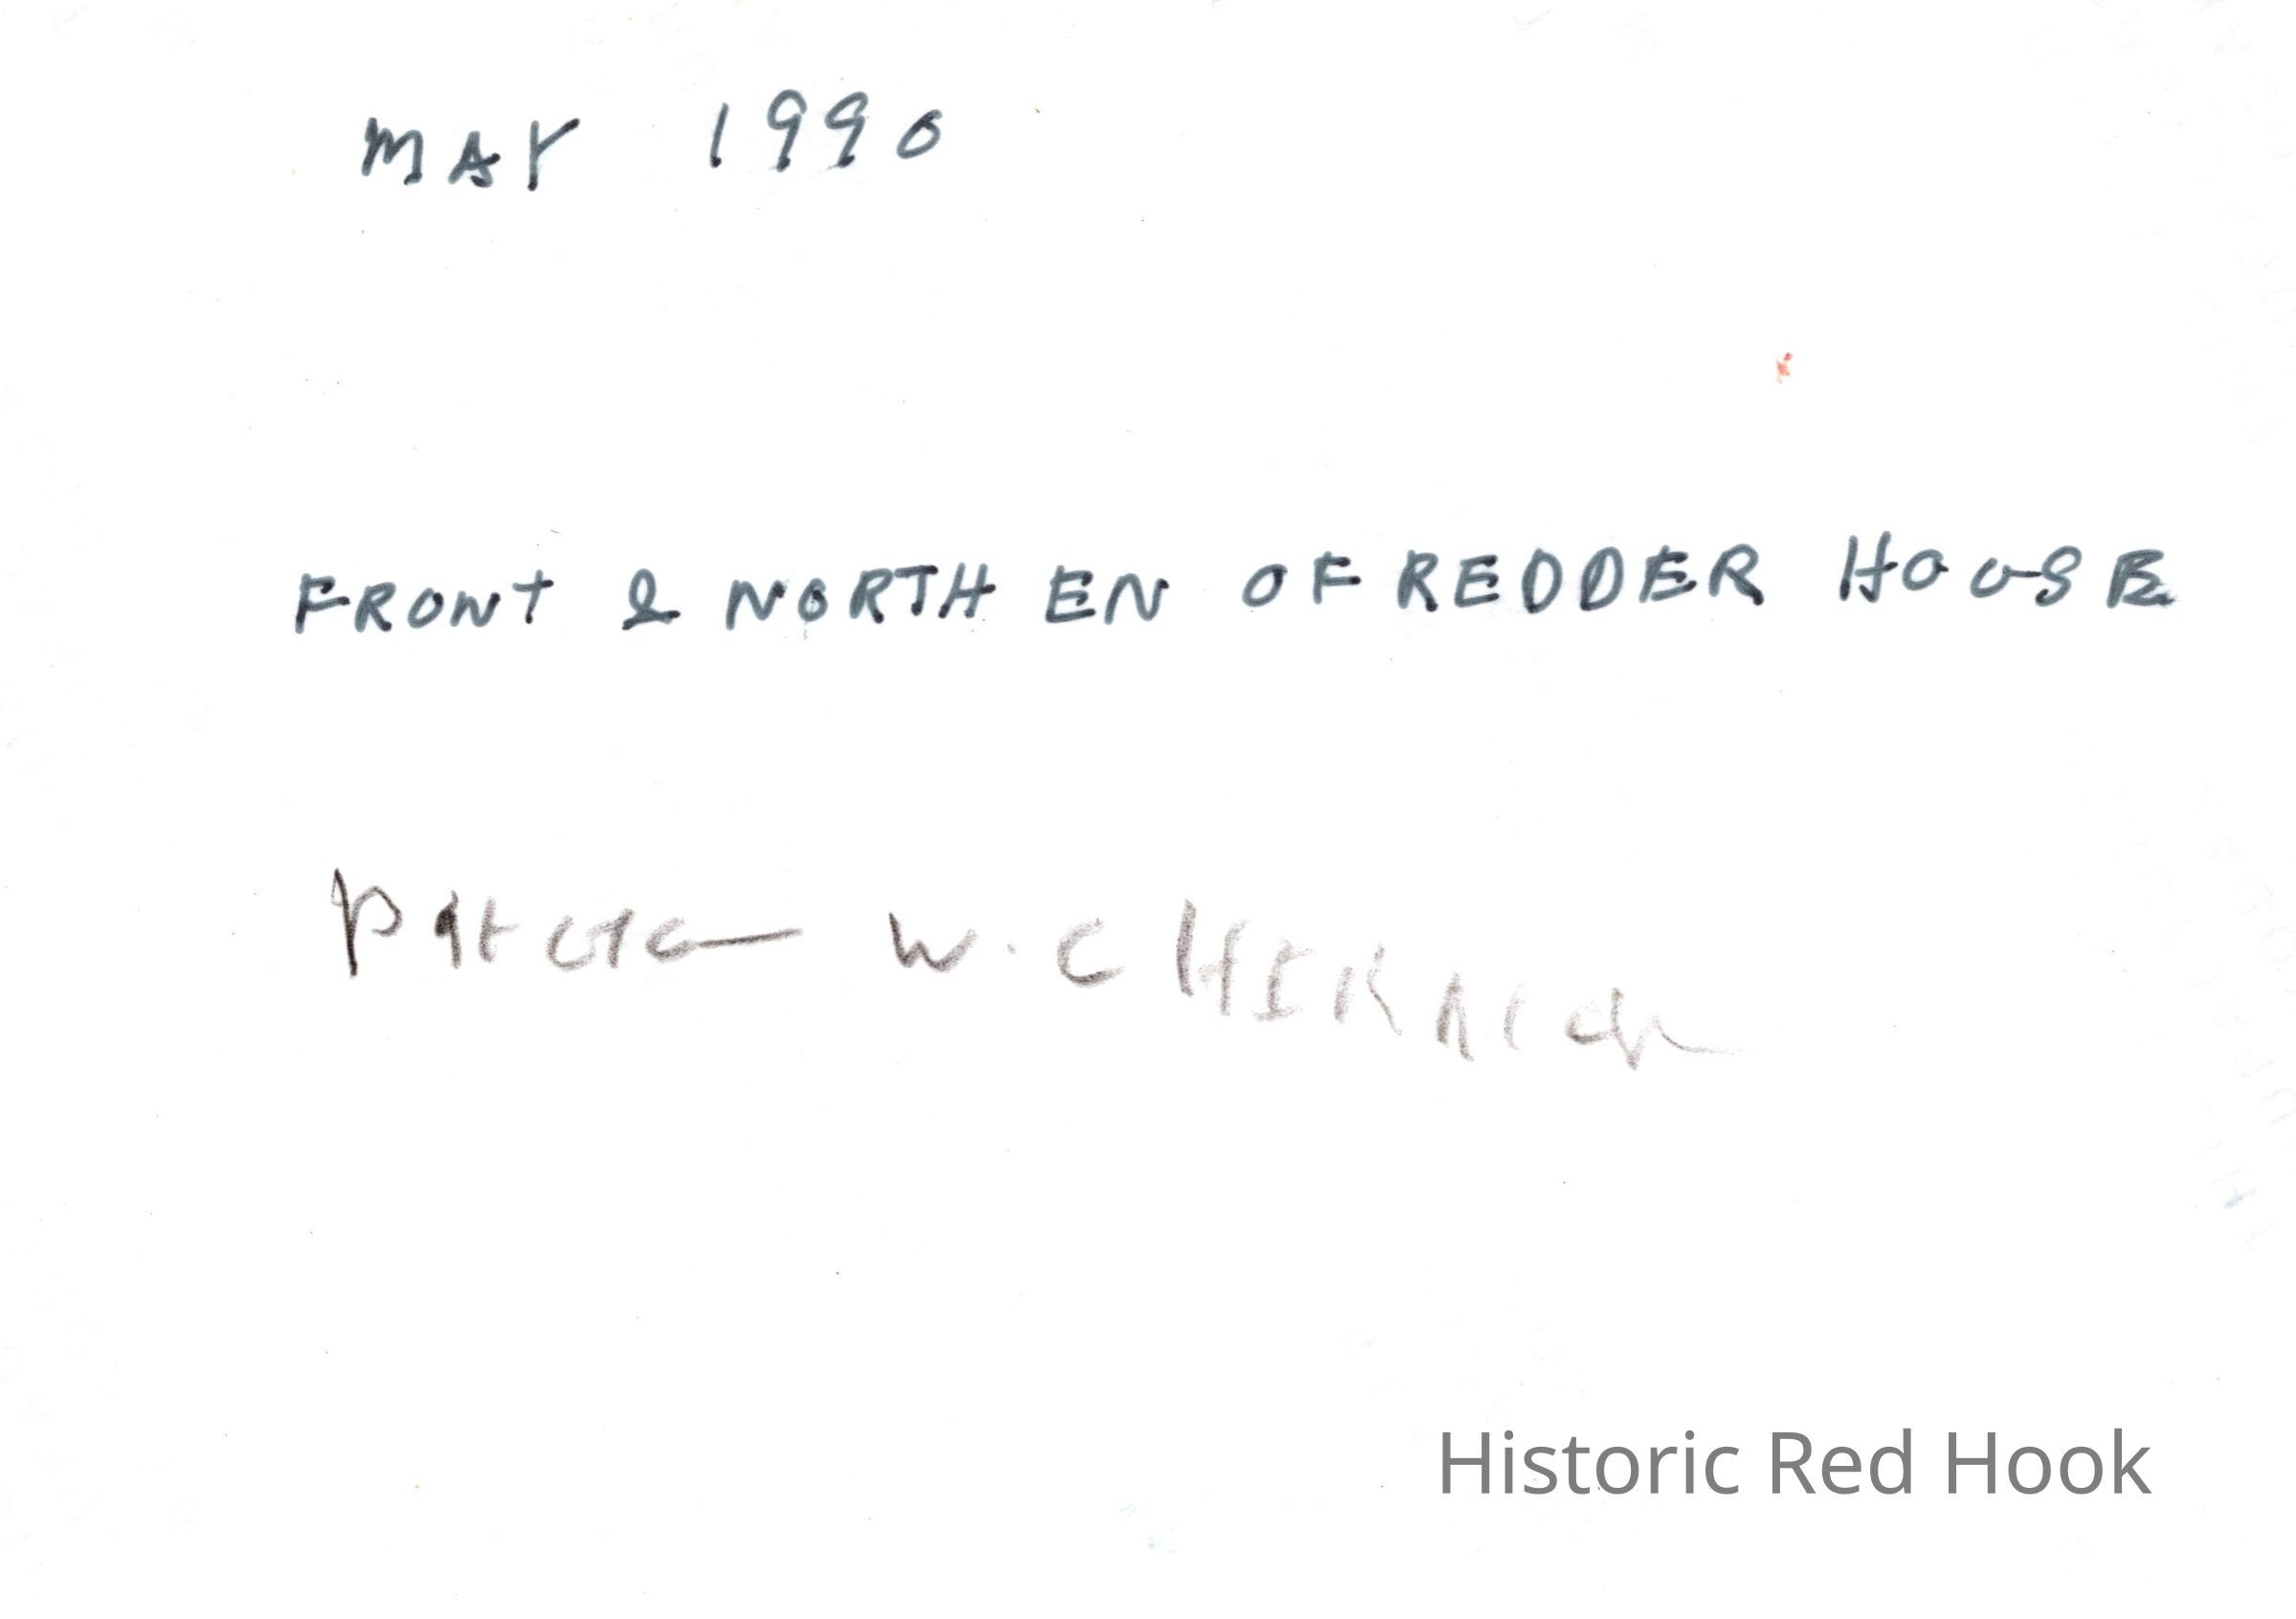 MAY 1990
FRONT & NORTH EN OF REDDER HOUSE
W. C
Historic Red Hook